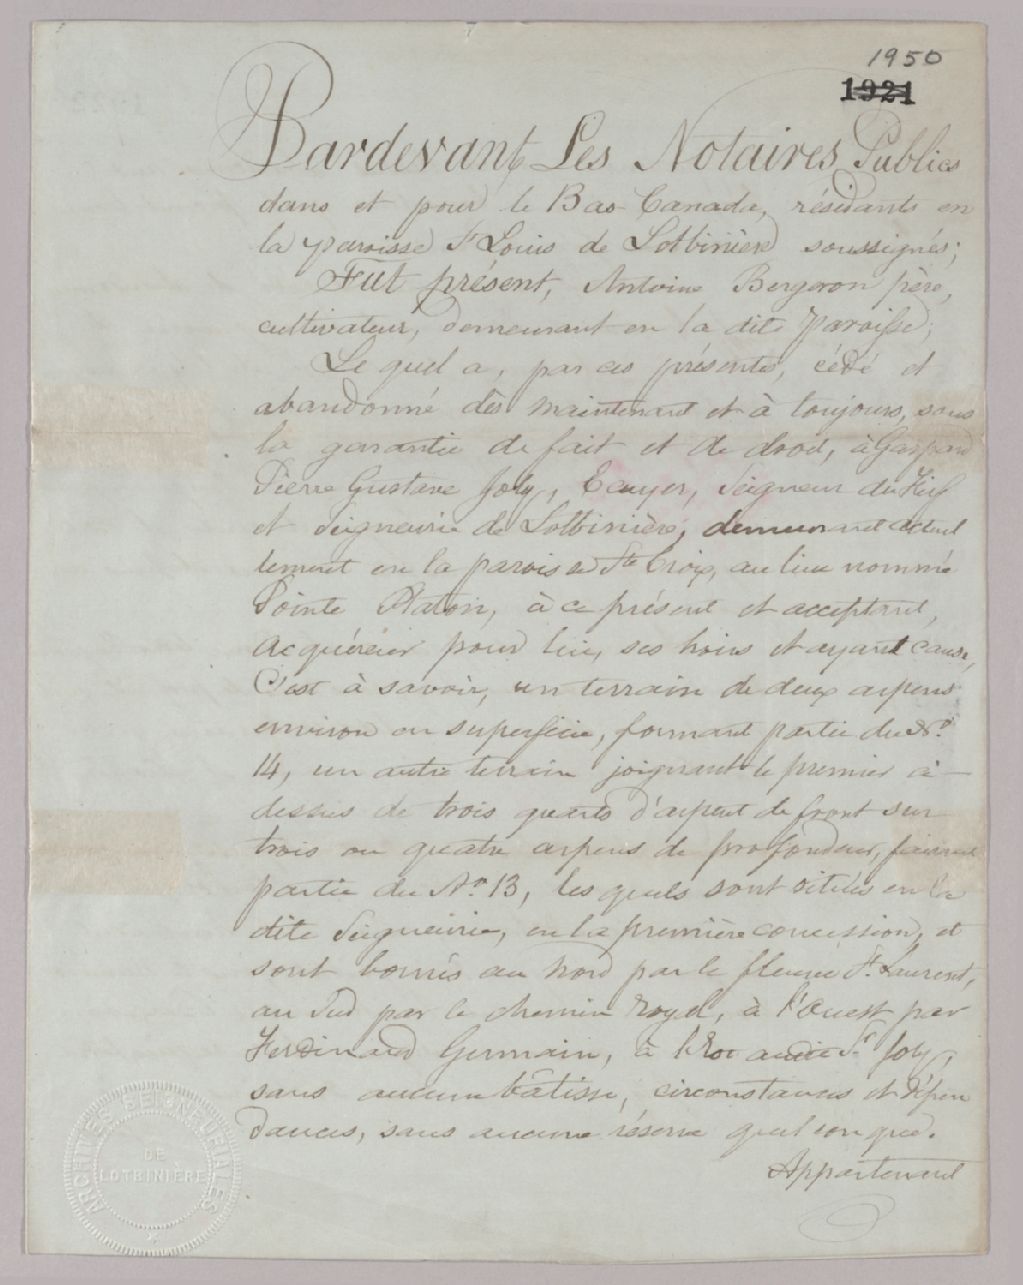 1950
1921
Pardevant Les Notaires Publics
dans et pour le Bas-Canada, résidants en
la paroisse St Louis de Lotbinière soussignés;
Fut présent, Antoine Bergeron père,
cultivateur, demeurant en la dite paroisse;
Le quel a, par ces présentes, cédé et
abandonné dès maintenant et à toujours, sous
la garantie de fait et de droit, à Gaspard
Pierre Gustave Joly, Ecuyer, Seigneur du Fief
et Seigneurie de Lotbinière, demeurant actuel
lement en la paroisse Ste Croix, au lieu nommé
Pointe Platon, à ce présent et acceptant,
acquéreur pour lui, ses hoirs et ayant cause,
C'est à savoir, un terrain de deux arpens
environ en superficie, formant partie du No.
14, un autre terrain joignant le premier ci-
dessus de trois quarts d'arpent de front sur
trois ou quatre arpens de profondeur, faisant
partie du No. 13, les quels sont situés en la
dite Seigneurie, en la première concession, et
sont bornés au Nord par le fleuve St. Laurent,
au Sud par le chemin royal, à l'Ouest par
Ferdinand Germain, à l'Est audit Sr. Joly,
sans aucune bâtisse, circonstances et dépen
dances, sans aucune réserve quelconque.
Appartenant
ARCHIVES SEIGNEURIALES
DE
LOTBINIÈRE